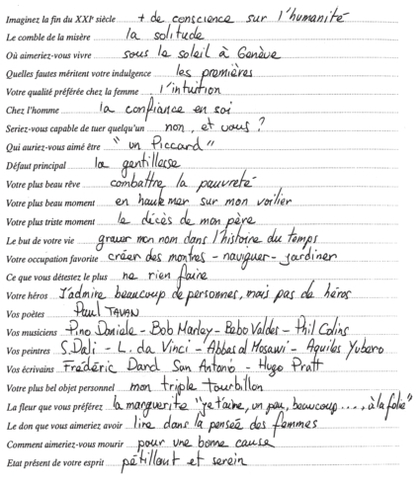 Imaginez la fin du XXIe siècle + de conscience sur l'humanité
Le comble de la misère la solitude
Où aimeriez-vous vivre sous le soleil à Genève
Quelles fautes méritent votre indulgence les premières
Votre qualité préférée chez la femme l'intuition
Chez l'homme la confiance en soi
Seriez-vous capable de tuer quelqu'un non, et vous ?
Qui auriez-vous aimé être "un Piccard"
Défaut principal la gentillesse
Votre plus beau rêve combattre la pauvreté
Votre plus beau moment en haute mer sur mon voilier
Votre plus triste moment le décès de mon père
Le but de votre vie graver mon nom dans l'histoire du temps
Votre occupation favorite créer des montres - naviguer - jardiner
Ce que vous détestez le plus ne rien faire
Votre héros J'admire beaucoup de personnes, mais pas de héros
Vos poètes Paul TAVAN
Vos musiciens Pino Daniele - Bob Marley - Bebo Valdes - Phil Colins
Vos peintres S. Dali - L. da Vinci - Abbas al Mosawi - Aquiles Yubero
Vos écrivains Frédéric Dard San Antonio - Hugo Pratt
Votre plus bel objet personnel mon triple tourbillon
La fleur que vous préférez la marguerite "je t'aime, un peu, beaucoup ...., à la folie"
Le don que vous aimeriez avoir lire dans la pensée des femmes
Comment aimeriez-vous mourir pour une bonne cause
Etat présent de votre esprit pétillant et serein